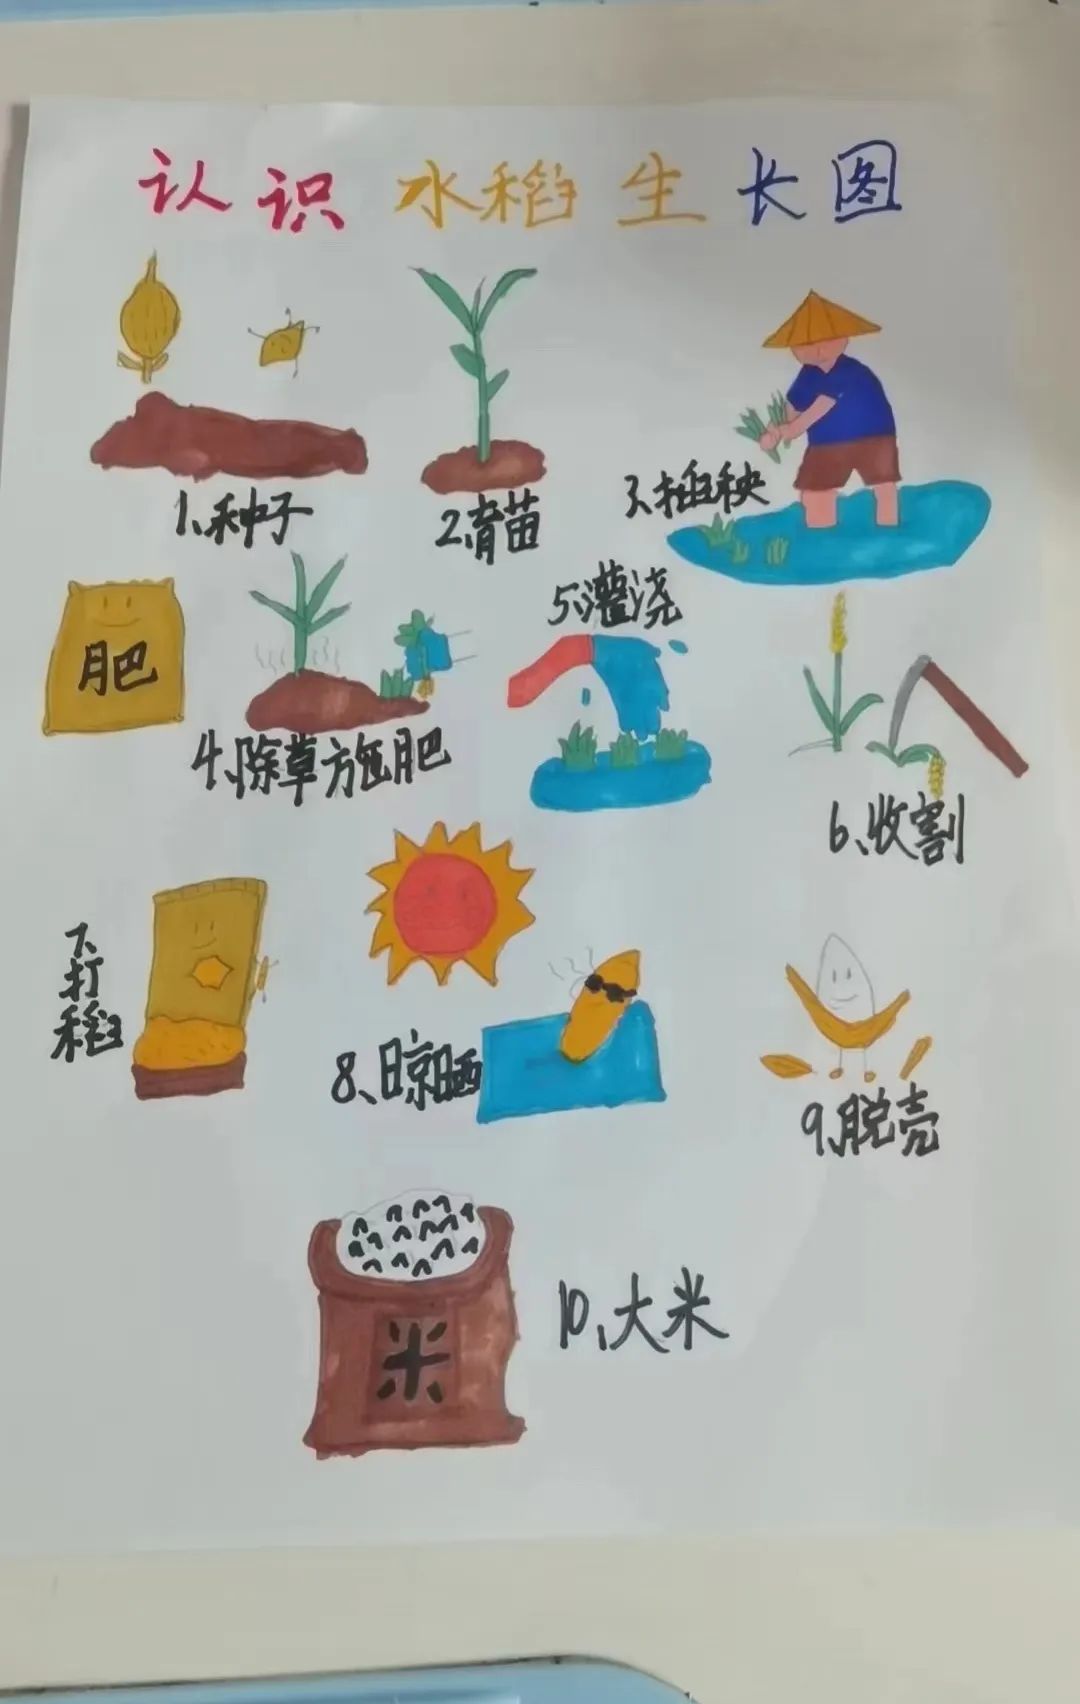 认识水稻生长图
1、种子
2、育苗
3、插秧
肥
4、除草施肥
5、灌浇
6、收割
7、打稻
8、晾晒
9、脱壳
米
10、大米